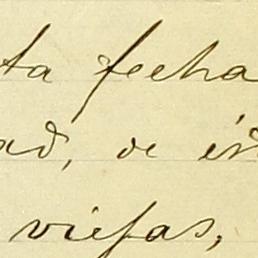 ta fecha
ad, de
viejas,